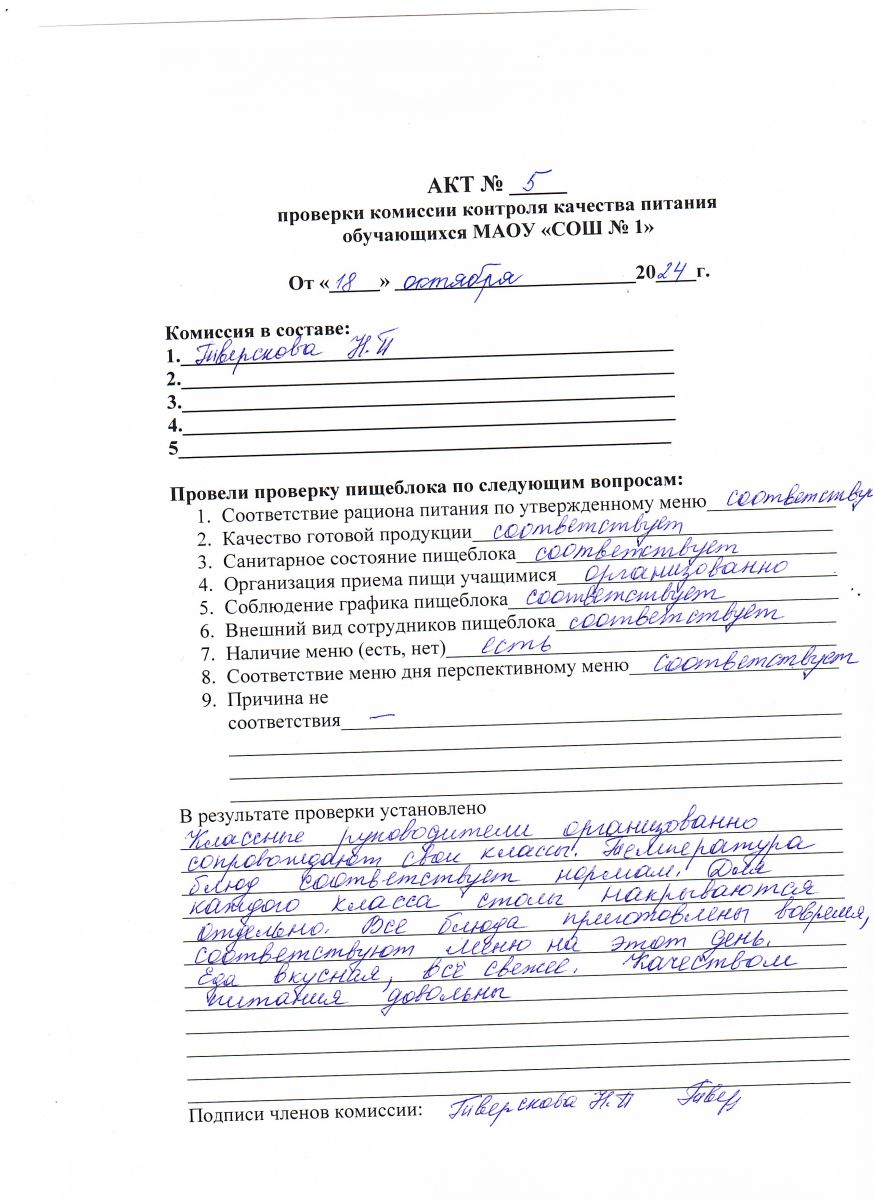 АКТ № 5
проверки комиссии контроля качества питания
обучающихся МАОУ «СОШ № 1»
От «18» октября 2024 г.
Комиссия в составе:
1. Тиверскова Н.П
2.
3.
4.
5
Провели проверку пищеблока по следующим вопросам:
1. Соответствие рациона питания по утвержденному меню соответствую
2. Качество готовой продукции соответствует
3. Санитарное состояние пищеблока соответствует
4. Организация приема пищи учащимися организованно
5. Соблюдение графика пищеблока соответствует
6. Внешний вид сотрудников пищеблока соответствует
7. Наличие меню (есть, нет) есть
8. Соответствие меню дня перспективному меню соответствует
9. Причина не
соответствия —
В результате проверки установлено
Классные руководители организованно
сопровождают свои классы. Температура
блюд соответствует нормам. Для
каждого класса столы накрываются
отдельно. Все блюда приготовлены вовремя,
соответствуют меню на этот день.
Еда вкусная, всё свежее. Качеством
питания довольны
Подписи членов комиссии: Тиверскова Н.П Тивер